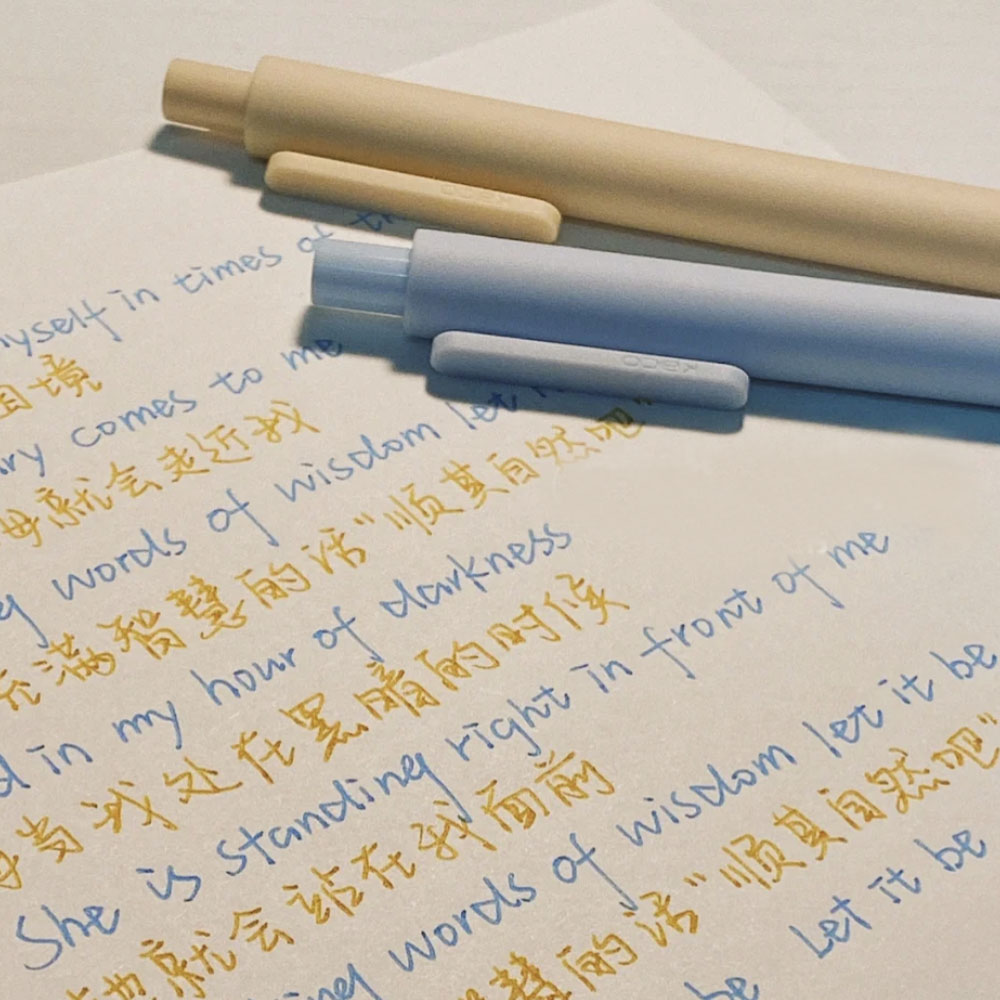 KACO
KACO
myself in times of
困境
comes to me
母就会走近我
words of wisdom let
充满智慧的话"顺其自然吧"
in my hour of darkness
当我处在黑暗的时候
She is standing right in front of me
就会站在我面前
words of wisdom let it be
慧的话"顺其自然吧"
be Let it be